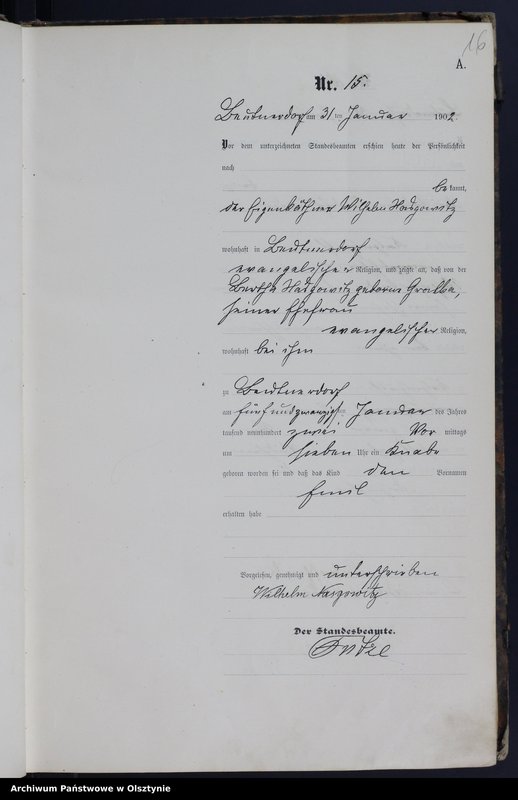 16
A.
Nr. 15.
Beutnerdorf am 31 ten Januar 1902.
Vor dem unterzeichneten Standesbeamten erschien heute der Persönlichkeit
nach
bekannt,
der Eigenkäthner Wilhelm
wohnhaft in Beutnerdorf
evangelischer Religion, und zeigte an, daß von der
Bertha geborne Gralla,
seiner Ehefrau
evangelischer Religion,
wohnhaft bei ihm
zu Beutnerdorf
am fünfundzwanzigsten Januar des Jahres
tausend neunhundert zwei Vor mittags
um sieben Uhr ein Knabe
geboren worden sei und daß das Kind den Vornamen
Emil
erhalten habe
Vorgelesen, genehmigt und unterschrieben
Wilhelm
Der Standesbeamte.
Archiwum Państwowe w Olsztynie